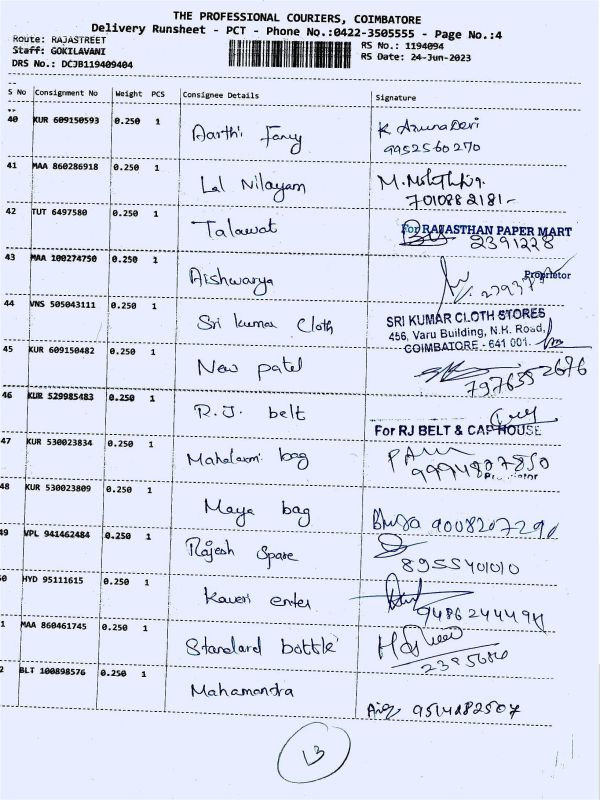 THE PROFESSIONAL COURIERS, COIMBATORE
Delivery Runsheet - PCT - Phone No.:0422-3505555 - Page No.:4
Route: RAJASTREET
Staff: GOKILAVANI
DRS No.: DCJB119409404
RS No.: 1194094
RS Date: 24-Jun-2023
S No Consignment No Weight PCS Consignee Details Signature
40 KUR 609150593 0.250 1 Aarthi Fancy K Aruna Devi
9952560270
41 MAA 860286918 0.250 1 Lal Nilayam M.
7010882181-
42 TUT 6497580 0.250 1 Talawat For RAJASTHAN PAPER MART
2391228
43 MAA 100274750 0.250 1 Aishwarya Proprietor
44 VNS 505043111 0.250 1 Sri kumar Cloth SRI KUMAR CLOTH STORES
456, Varu Building, N.H. Road,
COIMBATORE - 641 001.
45 KUR 609150482 0.250 1 New patel 7976552676
46 KUR 529985483 0.250 1 R.J. belt For RJ BELT & CAP HOUSE
47 KUR 530023834 0.250 1 Mahalaxmi bag
9994807850
48 KUR 530023809 0.250 1 Maya bag 9008207290
49 VPL 941462484 0.250 1 Rajesh Spare
8955401010
0 HYD 95111615 0.250 1 Kaveri enter
9486244494
1 MAA 860461745 0.250 1 Standard bottle
2385686
2 BLT 100898576 0.250 1 Mahamandra 9514482507
13